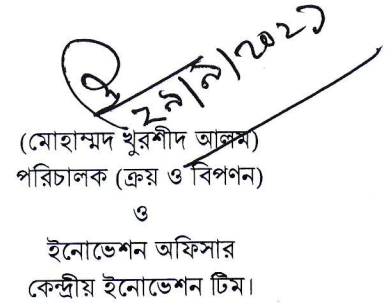 ২৯/৯/২০২১
(মোহাম্মদ খুরশীদ আলম)
পরিচালক (ক্রয় ও বিপণন)
ও
ইনোভেশন অফিসার
কেন্দ্রীয় ইনোভেশন টিম।